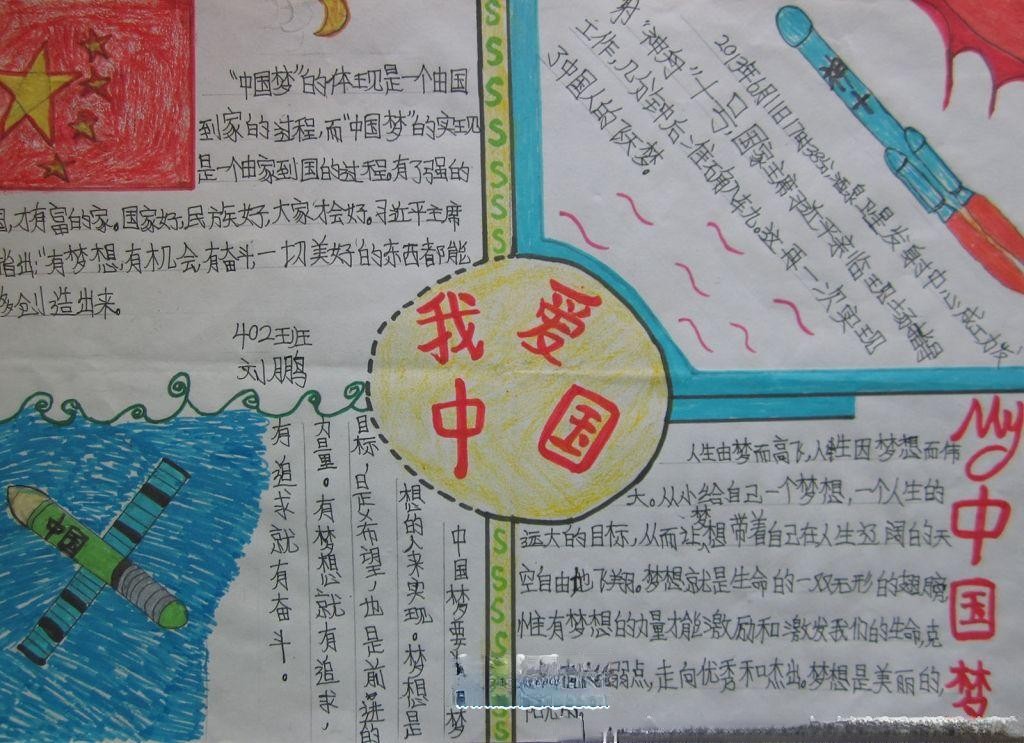 "中国梦"的体现是一个由国
到家的过程,而"中国梦"的实现
是一个由家到国的过程。有了强的
国,才有富的家。国家好,民族好,大家才会好。习近平主席
指出:"有梦想,有机会,有奋斗一切美好的东西都能
够创造出来。
402班
刘鹏
神十
2013年6月11日17时38分酒泉卫星发射中心成功发
射"神舟"十号,国家主席习近平亲临现场
工作,几分钟后,准确入轨。这再一次实现
了中国人的飞跃梦。
我爱
中国
SSSSSSS
SSSSSS
中国
中国梦要
国梦
想的人来实现。梦想是
目标,是希望,也是前进的
力量。有梦想就有追求,
有追求就有奋斗。
My中国梦
人生由梦而高飞,人生因梦想而伟
大。从小给自己一个梦想,一个人生的
远大的目标,从而让梦想带着自己在人生辽阔的天
空自由地飞翔。梦想就是生命的一双无形的翅膀
惟有梦想的力量才能激励和激发我们的生命,克
弱点,走向优秀和杰出。梦想是美丽的,